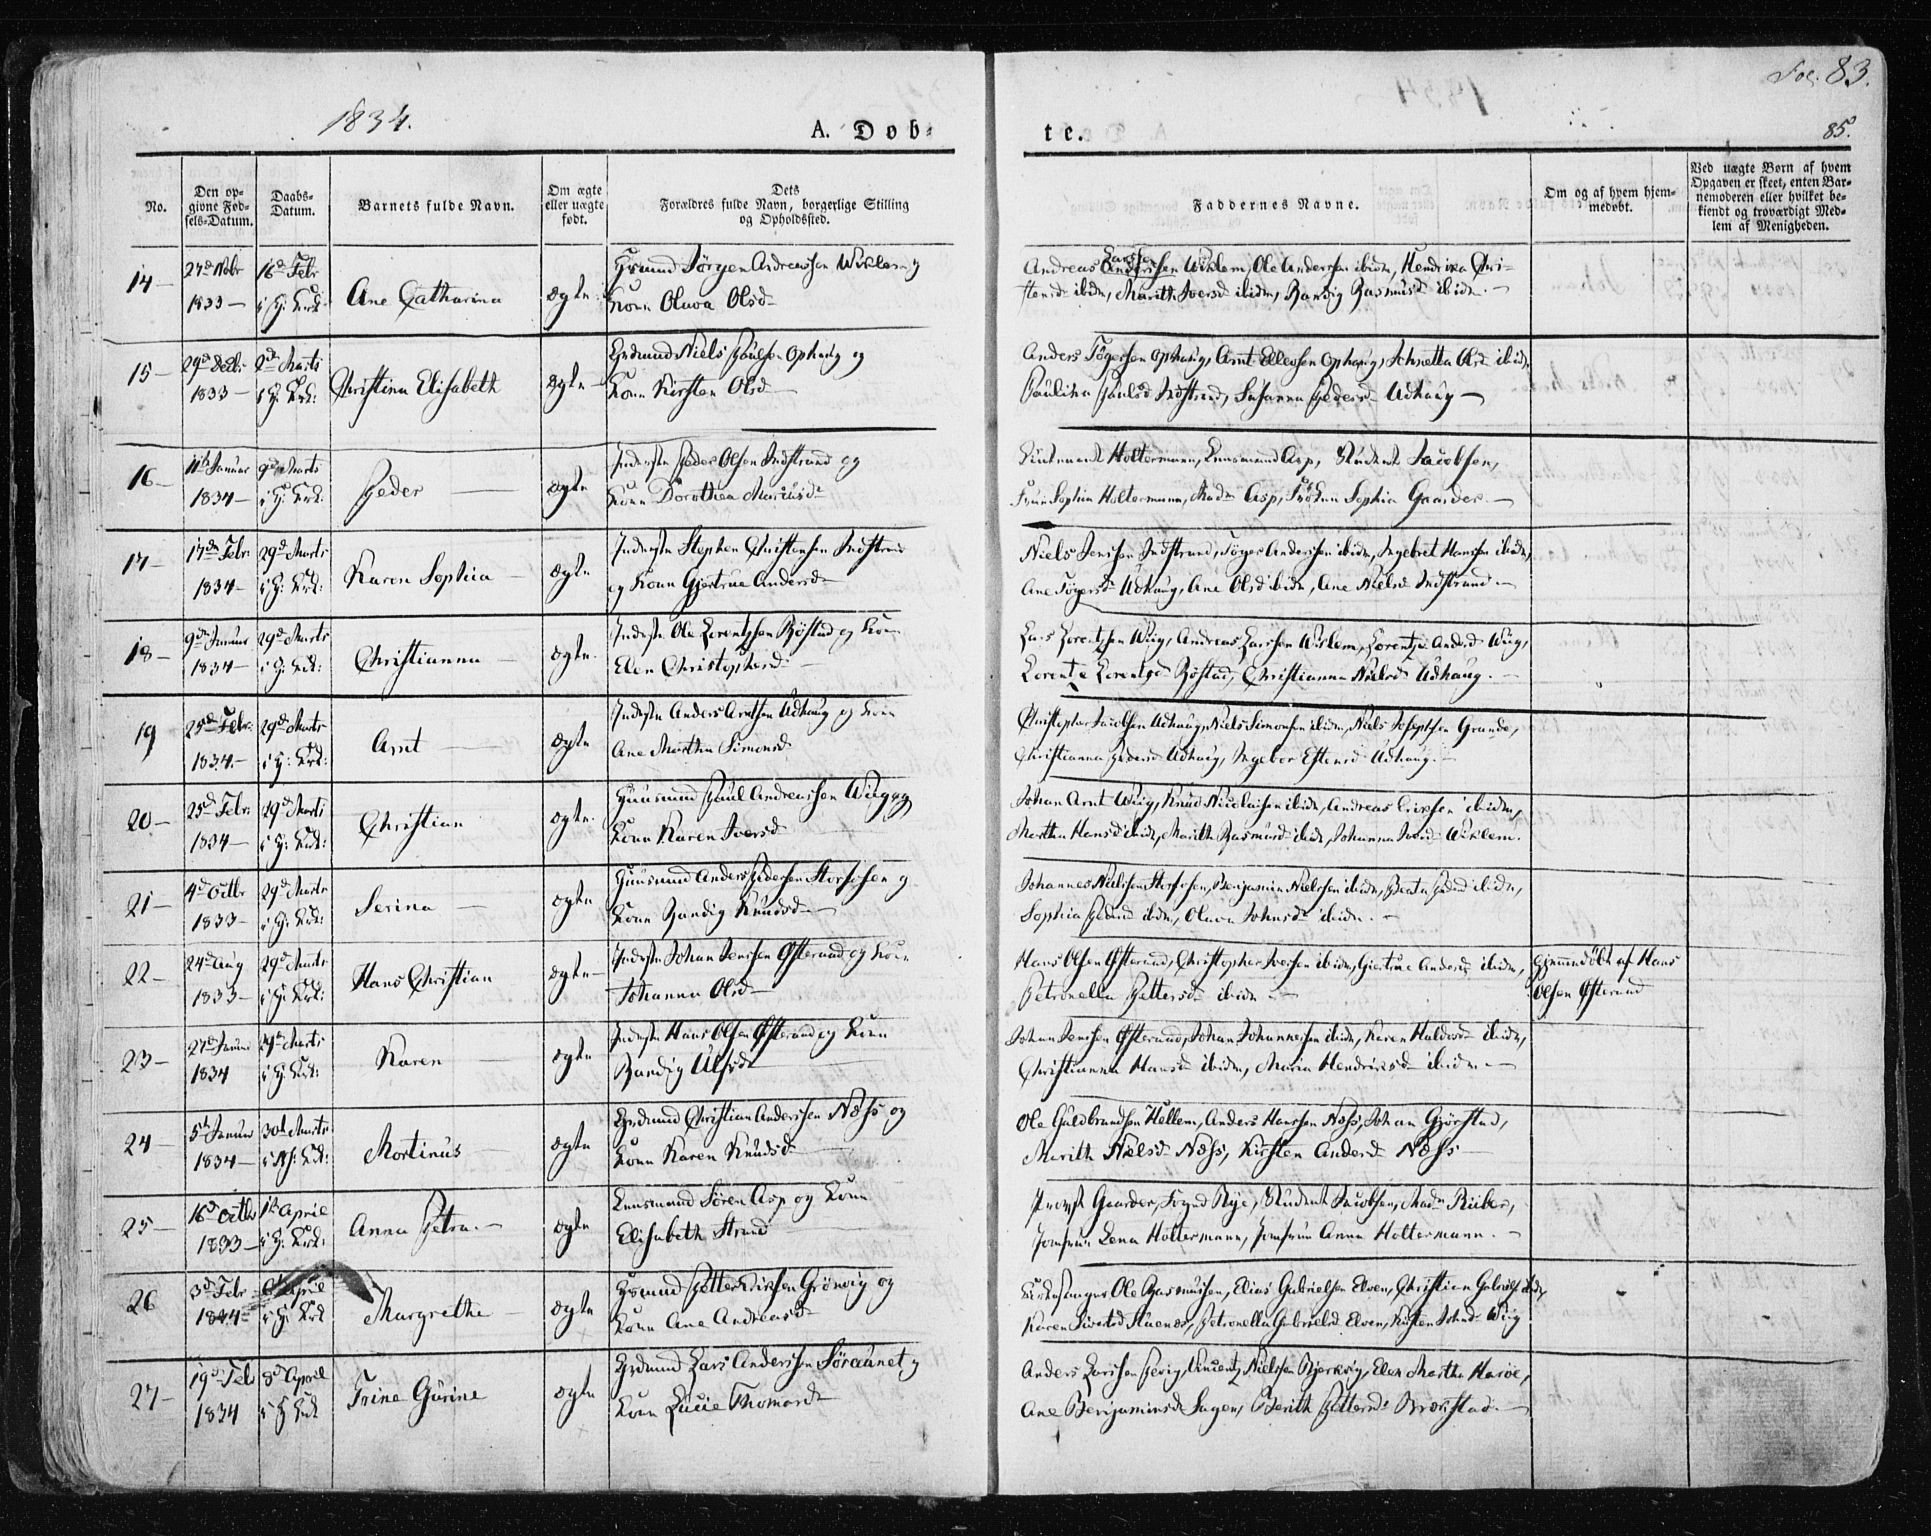 1834.
A. Døb-
te.
Fol. 83.
85.
No.
Den op-
givne Fød-
sels-Datum.
Daabs-
Datum.
Barnets fulde Navn.
Om ægte
eller uægte
født.
Dets
Forældres fulde Navn, borgerlige Stilling
og Opholdssted.
Faddernes Navne.
Om og af hvem hjem-
medøbt.
Ved uægte Børn af hvem
Opgaven er skeet, enten Bar-
nemoderen eller hvilket be-
kiendt og troværdigt Med-
lem af Menigheden.
14 —
1833 —
16d Febr
Ane Catharina
ægte
Jørgen Andreassen Wiklem og
Kone Olava Olsd
Andreas Larssen Wiklem, Ole Anderssen ibidm, Hendrika Chri-
stensd ibidm, Marith Iversd ibidm, Randig Rasmusd ibidm —
15 —
29d Decbr
1833 —
2d Marts
Christina Elisabeth
ægte
Grdmand Niels Paulsen Ophaug og
Kone Kirsten Olsd
Anders Tøgersen Ophaug, Arnt Ellevsen Ophaug, Olsd ibidm,
Paulina Paulsd Indstrand, Susanna Pedersd Udhaug —
16 —
11t Januar
1834 —
9d Marts
Peder
ægte
Inderste Peder Olsen Indstrand og
Kone Dorothea Marcusd
Lieutenant Holtermann, Lensmand Asp, Student Jacobsen,
Frue Sophia Holtermann, Mad Asp, Frøken Sophia Gaarder —
17 —
17de Febr.
1834 —
29d Marts
Karen Sophia
ægte
Inderste Stephen Christensen Indstrand
og Kone Gjertrue Andersd
Niels Jenssen Indstrand, Tøger Anderssen ibidm, Ingebret Hanssen ibidm,
Ane Tøgersd Udhaug, Ane Olsd ibidm, Ane Nielsd Indstrand —
18 —
9de Januar
1834 —
29d Marts
Christianna
ægte
Inderste Ole Lorentzsen Røstad og Kone
Elen Christophersd
Lars Lorentzsen Wiig, Andreas Larssen Wiklem, Lorentze Andersd Wiig,
Lorentze Lorentzsd Røstad, Christianna Nielsd Udhaug. —
19
25de Febr.
1834. —
29d Marts
Arnt
ægte
Inderste Anders Arntsen Udhaug og Kone
Ane Martha Simonsd
Christopher Jacobsen Udhaug, Niels Simonsen ibidm, Niels Josephsen Grande,
Christianna Pedersd Udhaug, Ingebor Estensd Udhaug. —
20 —
25d Febr.
1834 —
29d Marts
Christian
ægte
Huusmand Paul Andreassen Wiig og
Kone Karen Iversd
Johan Arnt Wiig, Knud Nicolaisen ibidm, Andreas Erichsen ibidm,
Martha Hansd ibid, Marith Rasmusd ibid, Johanna Iversd Wiklem.
21 —
4d Octbr
1833 —
29d Marts
Serina
ægte
Huusmand Anders Pedersen Storfosen og
Kone Randig Knudsd
Johannes Nielssen Storfosen, Benjamin Nielssen ibidm, Beata Pedersd ibidm,
Sophia Pedersd ibidm, Olava Johnsd ibidm. —
22 —
24d Aug
1833 —
29d Marts
Hans Christian
ægte
Inderste Johan Jenssen Østeraad og Kone
Johanna Olsd
Hans Olsen Østeraad, Christopher Iversen ibidm, Giertrue Andersd ibidm,
Petronella Pettersd ibidm —
Hjemmedøbt af Hans
Olsen Østeraad
23 —
27d Januar
1834
29d Marts
Karen
ægte
Inderste Hans Olsen Østeraad og Kone
Randig Ulfsd
Johan Jenssen Østeraad, Johan Johannessen ibidm, Karen Haldorsd ibidm,
Christianna Hansd ibidm, Maria Hendriksd ibidm —
24 —
5t Januar
1834 —
30t Marts
Mortinus
ægte
Grdmand Christian Anderssen Næss og
Kone Karen Knudsd
Ole Guldbrandsen Hellem, Anders Hanssen Næss, Johan Gjørstad,
Marith Nielsd Næss, Kirsten Andersd Næss
25 —
16d Octbr
1833 —
1t April
Anna Petra. —
ægte
Lensmand Søren Asp og Kone
Elisabeth Strand
Provst Gaarder, Foged Rye, Student Jacobsen, Mad Rieber,
Jomfrue Lena Holtermann, Jomfrue Anna Holtermann. —
26
3d Febr
1834 —
April
Margrethe
ægte
Petter Grönvig og
Kone Ane Andreasd
Kirkesanger Ole Rasmussen, Elias Gabrielsen Elven, Christian Gabrielsen ibidm,
Karen Sivertsd, Petronella Gabrielsd Elven, Kirsten Johnsd Wiig
27 —
19d Feb
1834
8d April
Trine Gurine
ægte
Grdmand Lars Anderssen Søraunet og
Kone Lucie Thomasd
Anders Larssen, Vincentz Nielssen Bjerkvig, Elen Martha Harvei,
Ane Benjaminsd Sagen, Berith Pettersd